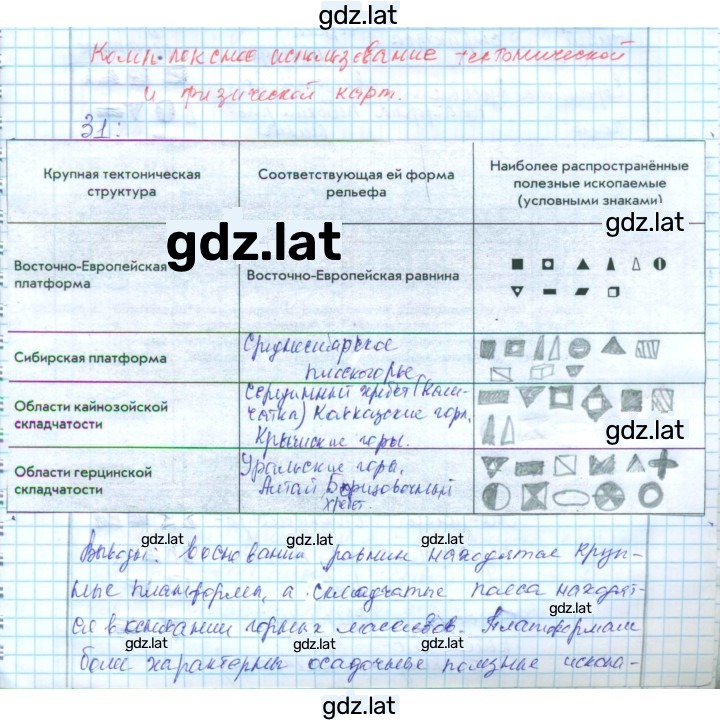 gdz.lat
Комплексное использование тектонической
и физической карт.
31:
Крупная тектоническая структура
Соответствующая ей форма рельефа
Наиболее распространённые полезные ископаемые (условными знаками)
gdz.lat
gdz.lat
Восточно-Европейская платформа
Восточно-Европейская равнина
Сибирская платформа
Среднесибирское
плоскогорье
Области кайнозойской складчатости
Серединный хребет (Кам-
чатка) Кавказские горы,
Крымские горы.
gdz.lat
Области герцинской складчатости
Уральские горы,
Алтай
хребет
gdz.lat
Выводы: в основании равнин находятся круп-
ные платформы, а складчатые пояса находят-
gdz.lat
ся в основании горных массивов. Платформам
gdz.lat
более характерны осадочные полезные ископа-
gdz.lat